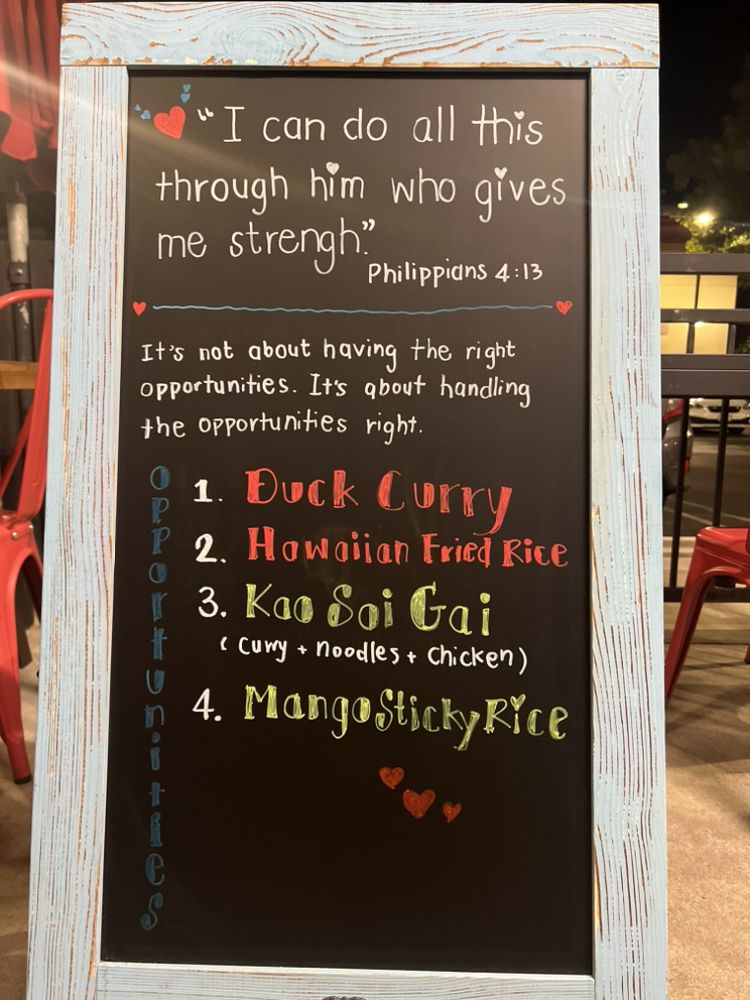 “I can do all this
through him who gives
me strengh.”
Philippians 4:13
It's not about having the right
opportunities. It's about handling
the opportunities right.
opportunities
1. Duck Curry
2. Hawaiian Fried Rice
3. Kao Soi Gai
(Curry + noodles + Chicken)
4. Mango Sticky Rice